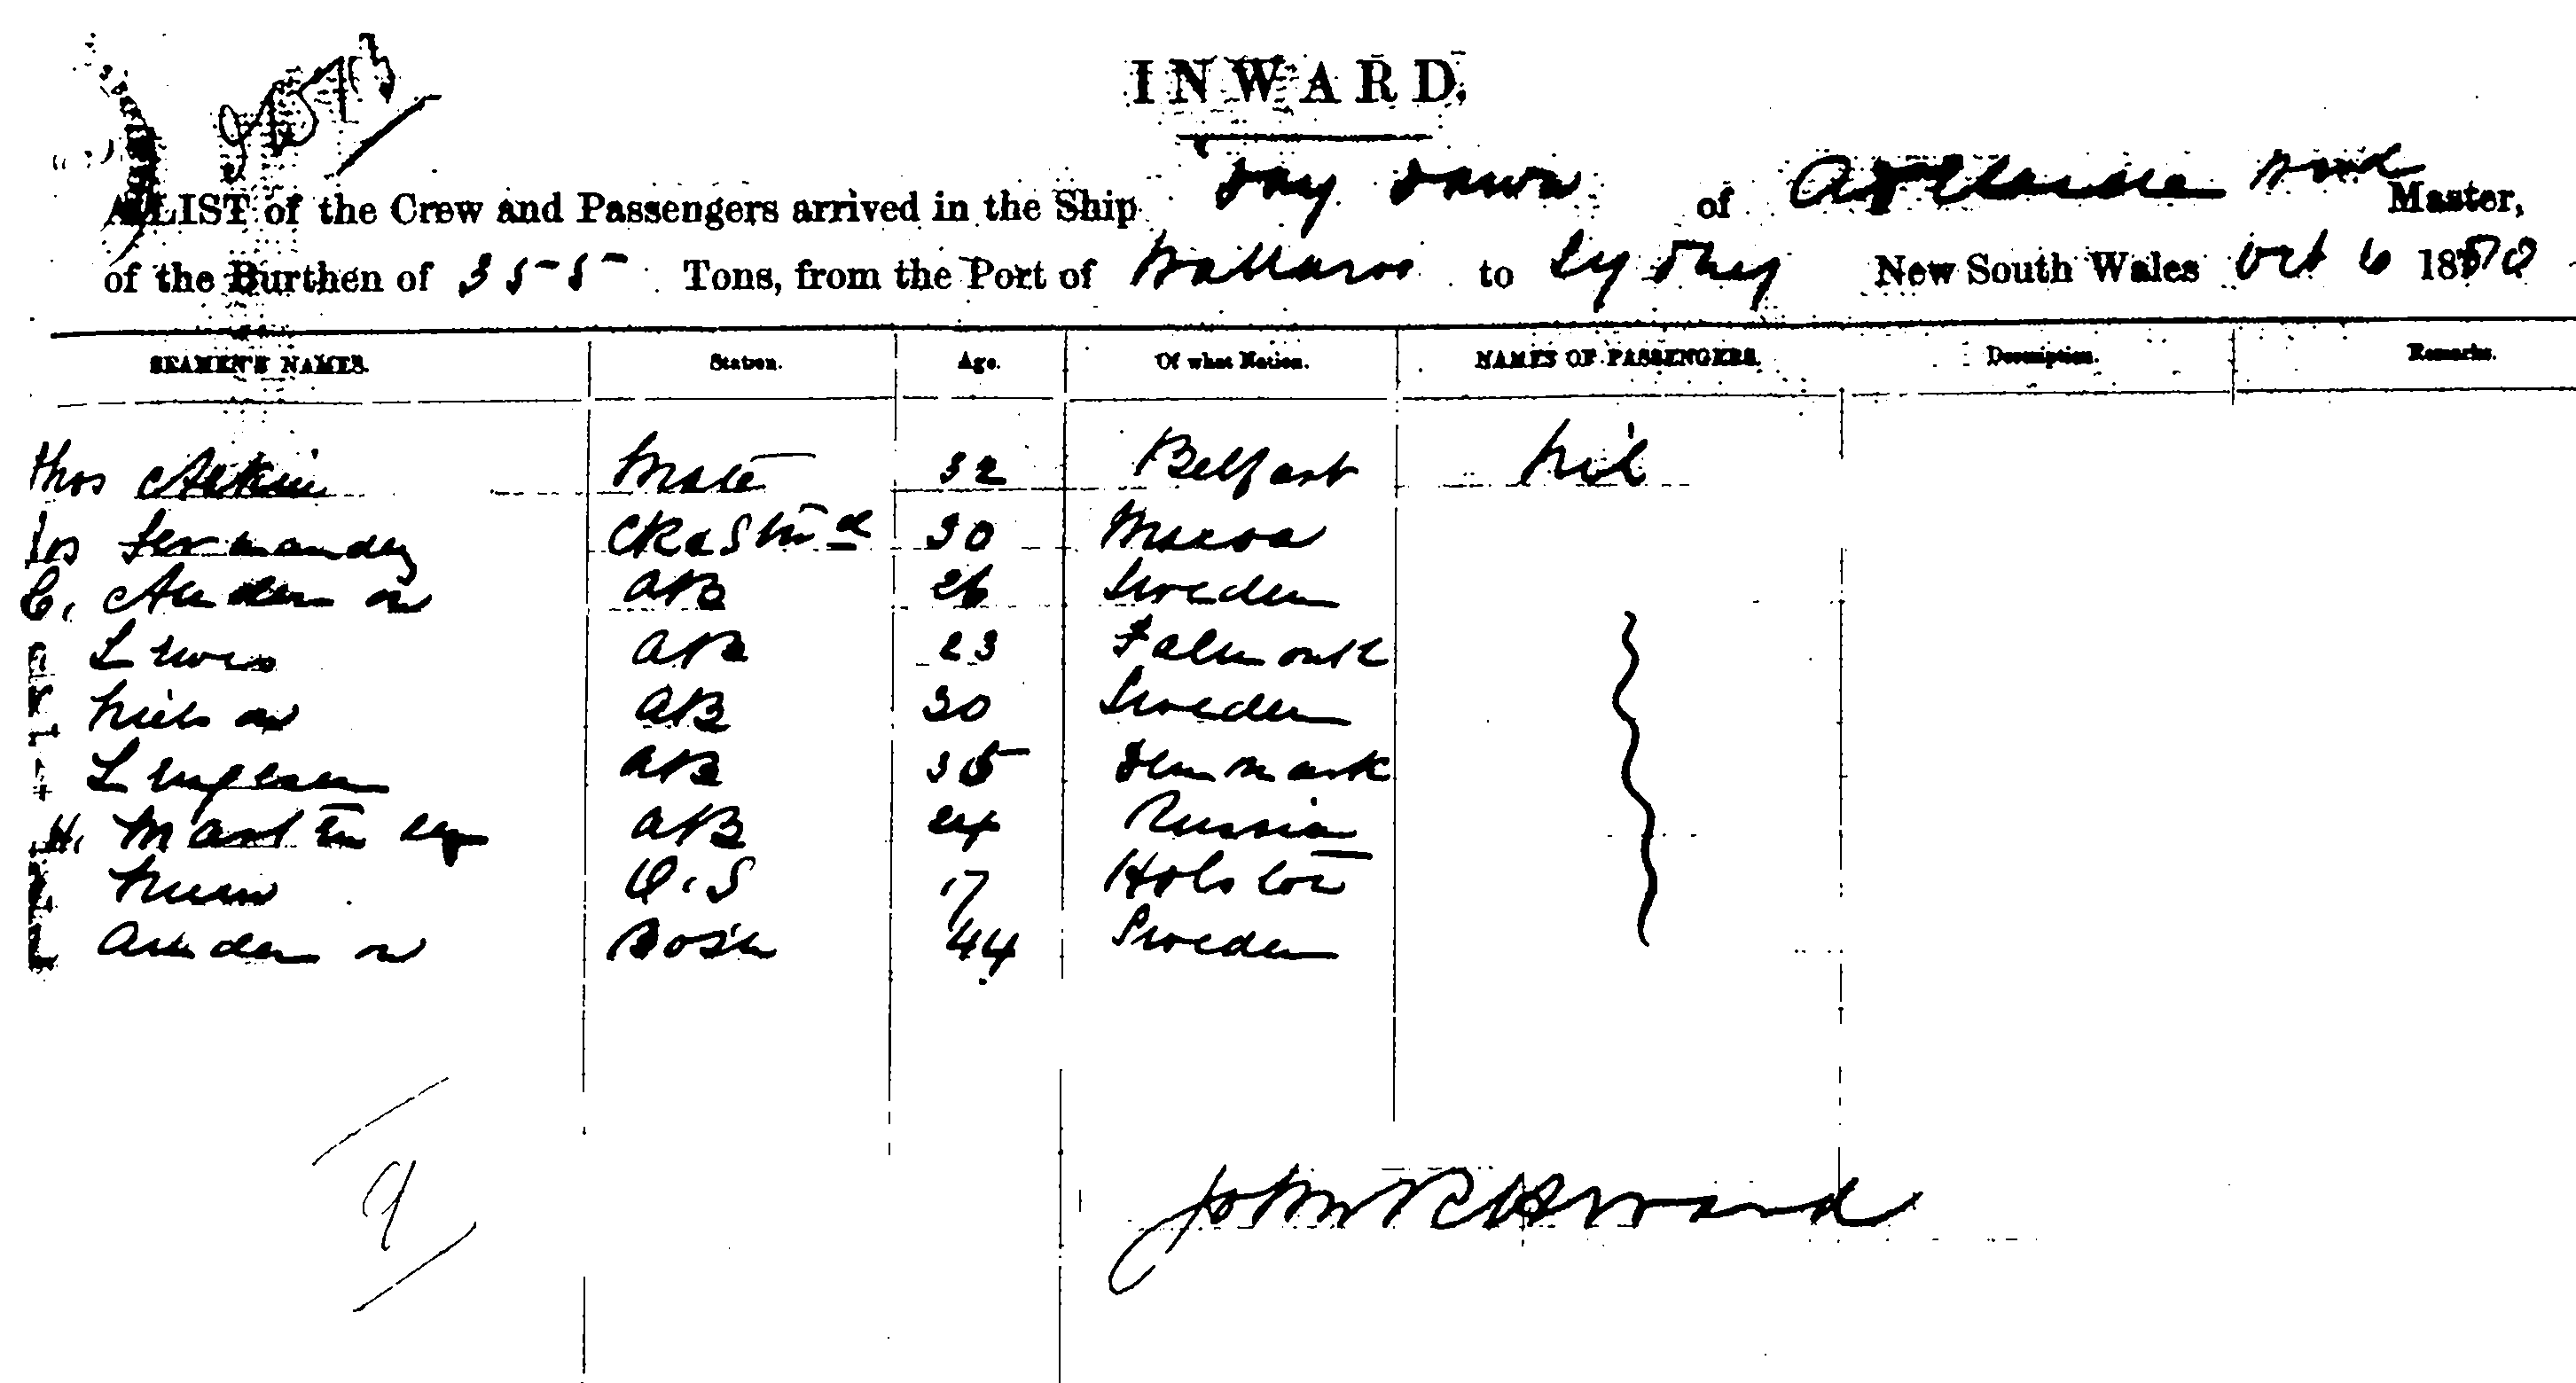 INWARD.
A LIST of the Crew and Passengers arrived in the Ship Day Dawn of Master,
of the Burthen of 355 Tons, from the Port of Wallaroo to Sydney New South Wales Oct 6 1870
SEAMEN'S NAMES. Station. Age. Of what Nation. NAMES OF PASSENGERS. Description. Remarks.
Thos Aitkin Mate 32 Belfast nil
Jos Fernandez 30
C. Anderson AB 26 Sweden
Lewis AB 23 Falmouth
Nielson AB 30 Sweden
AB 35 Denmark
H. AB 24 Russia
O.S 17
Anderson Bos'n 44 Sweden
9
John R Howard